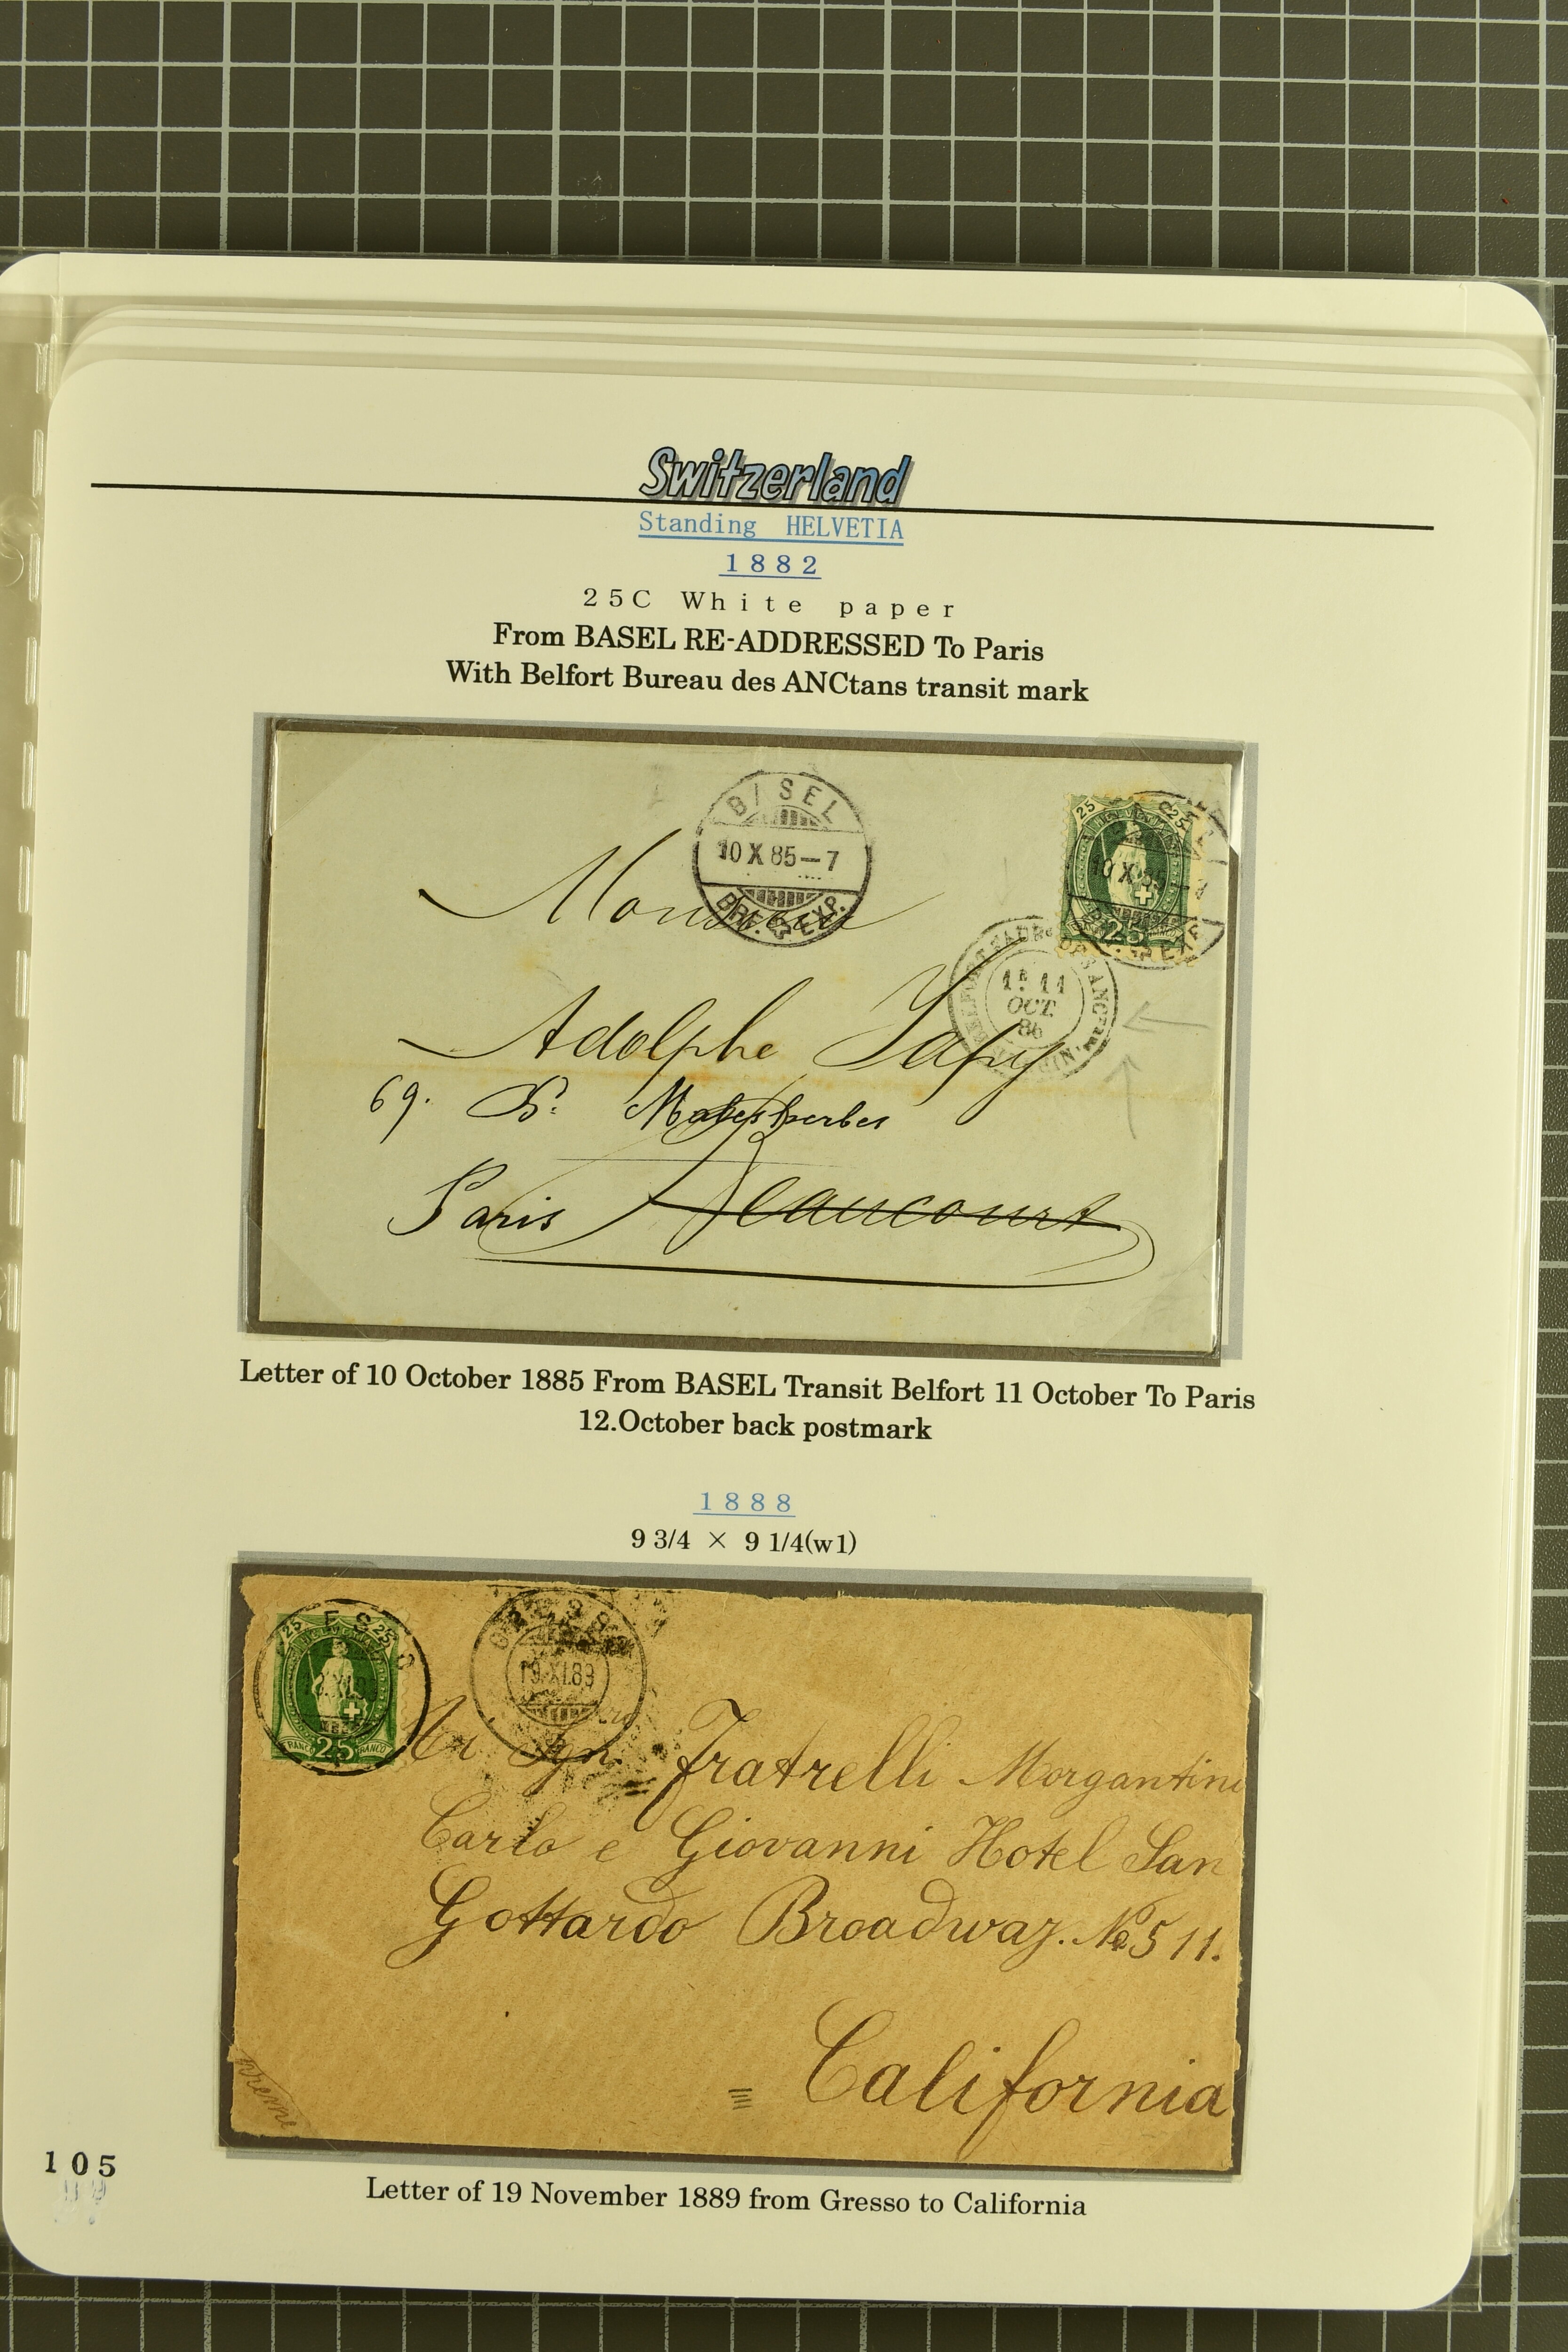 Switzerland
Standing HELVETIA
1882
25C White paper
From BASEL RE-ADDRESSED To Paris
With Belfort Bureau des ANCtans transit mark
BASEL
10 X 85—7
BRF. EXP.
25 25
10 X 85
25
11
OCT.
Monsieur
Adolphe Japy
69. Bd. Malesherbes
Paris Beaucourt
Letter of 10 October 1885 From BASEL Transit Belfort 11 October To Paris
12.October back postmark
1888
9 3/4 × 9 1/4(w1)
25 25
FRANCO 25 FRANCO
GRESSO
19.XI.89
Fratelli Morgantini
Carlo e Giovanni Hotel San
Gottardo Broadway. No 511.
California
Letter of 19 November 1889 from Gresso to California
105